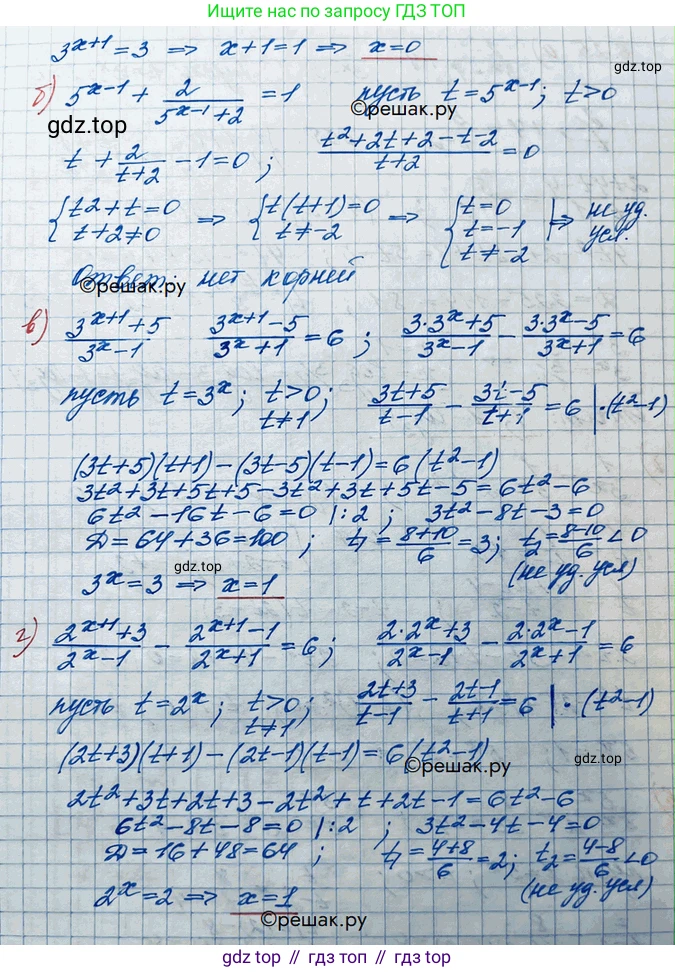 Ищите нас по запросу ГДЗ ТОП
3^(x+1) = 3 ⇒ x+1=1 ⇒ x=0
б) 5^(x-1) + 2/(5^(x-1)+2) = 1 пусть t = 5^(x-1); t>0
©решак.ру
gdz.top
t + 2/(t+2) - 1 = 0; (t²+2t+2-t-2)/(t+2) = 0
{t2+t=0 ⇒ {t(t+1)=0 ⇒ {t=0 |⇒ не уд.
t+2≠0 t≠-2 t=-1 усл.
t≠-2
Ответ: нет корней
©решак.ру
в) (3^(x+1)+5)/(3^x-1) (3^(x+1)-5)/(3^x+1) = 6; (3·3^x+5)/(3^x-1) - (3·3^x-5)/(3^x+1) = 6
пусть t=3^x; t>0; t≠1 (3t+5)/(t-1) - (3t-5)/(t+1) = 6 |·(t²-1)
(3t+5)(t+1)-(3t-5)(t-1)=6(t²-1)
3t²+3t+5t+5-3t²+3t+5t-5=6t²-6
6t²-16t-6=0 |:2; 3t²-8t-3=0
Д=64+36=100; t₁=(8+10)/6=3; t₂=(8-10)/6<0
(не уд. усл)
3^x=3 ⇒ x=1
gdz.top
г) (2^(x+1)+3)/(2^x-1) - (2^(x+1)-1)/(2^x+1) = 6; (2·2^x+3)/(2^x-1) - (2·2^x-1)/(2^x+1) = 6
пусть t=2^x; t>0; t≠1 (2t+3)/(t-1) - (2t-1)/(t+1) = 6 |·(t²-1)
(2t+3)(t+1)-(2t-1)(t-1)=6(t²-1)
©решак.ру
gdz.top
2t²+3t+2t+3-2t²+t+2t-1=6t²-6
6t²-8t-8=0 |:2; 3t²-4t-4=0
Д=16+48=64; t₁=(4+8)/6=2; t₂=(4-8)/6<0
(не уд. усл)
2^x=2 ⇒ x=1
©решак.ру
gdz.top // гдз.топ // gdz.top